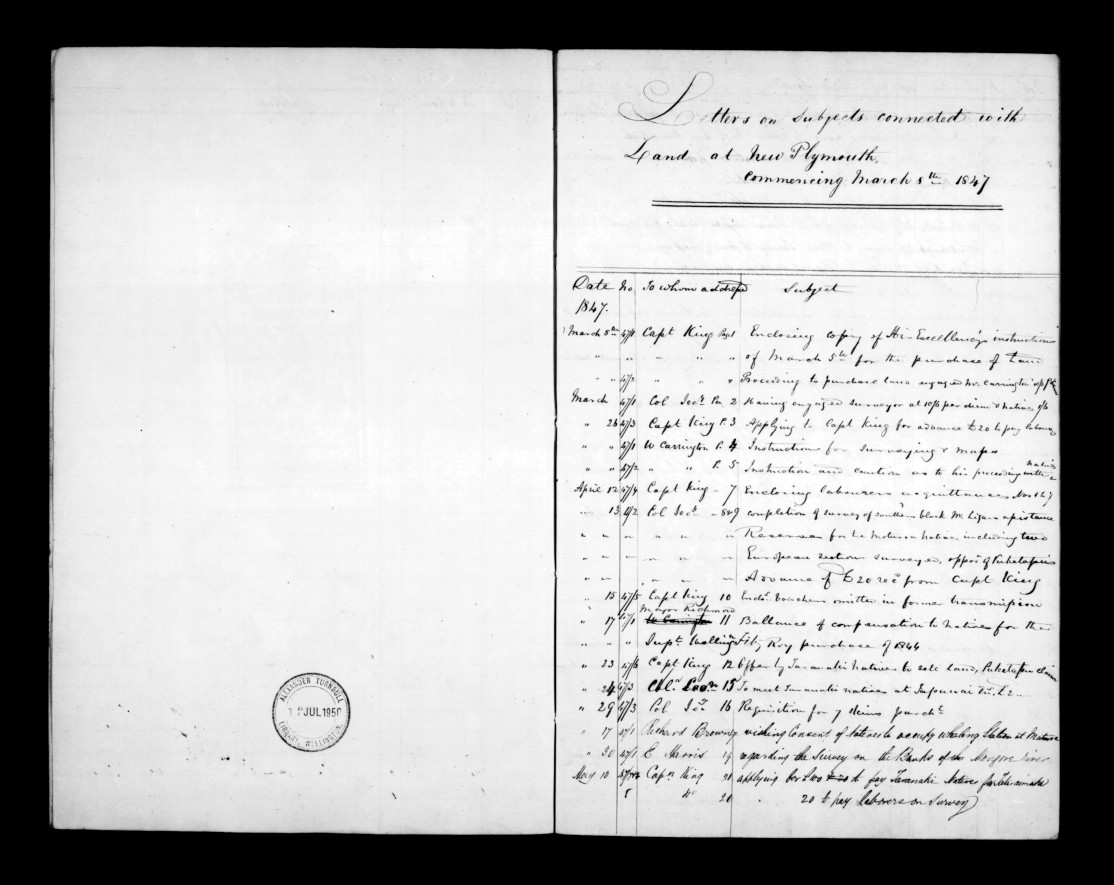 ALEXANDER TURNBULL
JUL 1950
LIBRARY, WELLINGTON
Letters on Subjects connected with
Land at New Plymouth
Commencing March 8th 1847
Date No. To whom addressed Subject
1847.
March 8th 47/1 Capt King Pag 1 Enclosing copy of His Excellency's instructions
" " " " " of March 5th for the purchase of Land
" " 47/2 " " " Proceeding to purchase land engaged Mr Carrington
March 47/1 Col Secy Pa. 2 Having engaged Surveyor at 10/6 per diem & Natives
" 26 47/3 Capt King P. 3 Applying to Capt King for advance £20 to pay labourers
" " 47/1 W Carrington P. 4 Instructions for Surveying & maps
" " 47/2 " " P. 5 Instruction and caution as to his proceeding with Natives
April 12 47/4 Capt King - 7 Enclosing labourers acquittances Nos 1 to 7
" 13 47/2 Col Secy - 8&9 completion of survey of southern block Mr Ligars assistance
" " " " " " Reserves for the Moturoa Natives including two
" " " " " " European sections surveyed, oppos of Puketapus
" " " " " " Advance of £20 recd from Capt King
" 15 47/5 Capt King 10 Encls. Vouchers omitted in former transmission
" 17 47/1 Major Richmond 11 Ballance of compensation to Natives for the
" " " Supt Wellington Fitz Roy purchase of 1844
" 23 47/6 Capt King 12 Offer by Taranaki Natives to sell land, Puketapu claim
" 24 47/3 Col. Secy 15 To meet Taranaki natives at
" 29 47/3 Col Secy 16 Requisition for 7 skins parcht
" 17 47/1 Richard Brown wishing Consent of Natives to occupy Whaling Station at
" 30 47/1 E Harris 19 regarding the Survey on the Banks of the River
May 10 Capn King 21 applying for to pay Taranaki Natives
8 Do 21 " 20 to pay laborers on Survey